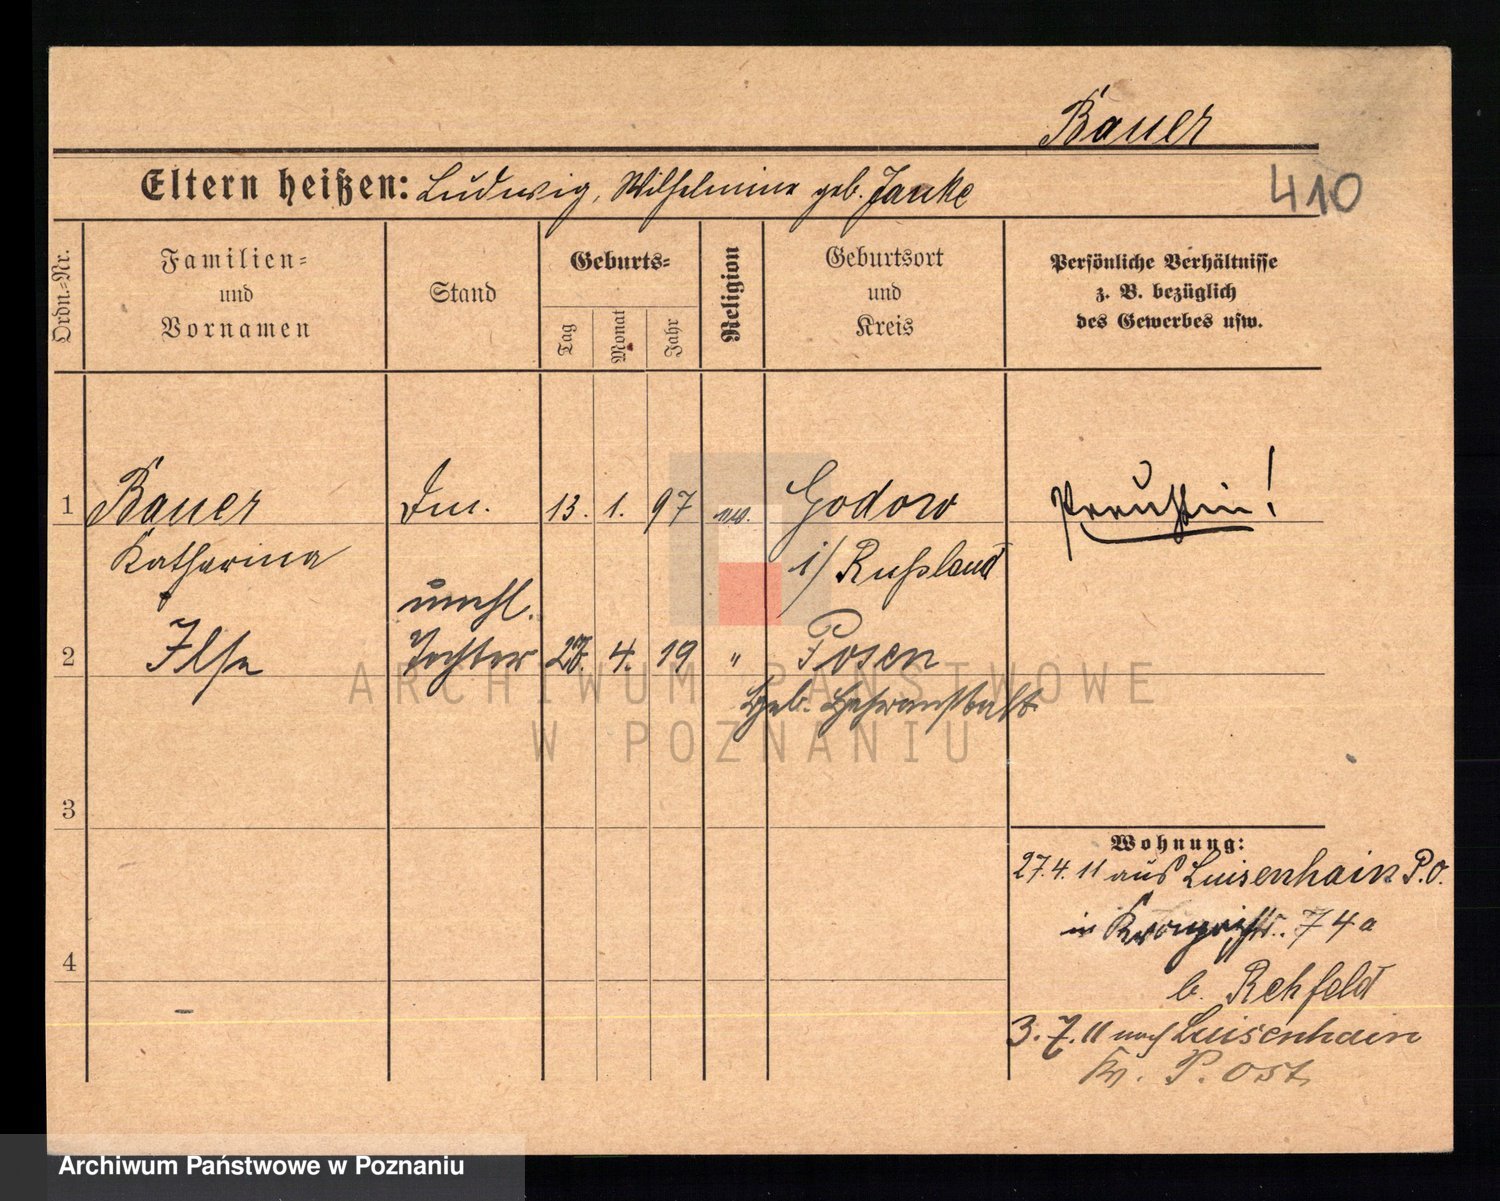 Bauer
Eltern heißen: Ludwig, Wilhelmine geb. Janke
410
Ordn.-Nr.
Familien-
und
Vornamen
Stand
Geburts-
Tag
Monat
Jahr
Religion
Geburtsort
und
Kreis
Persönliche Verhältnisse
z. B. bezüglich
des Gewerbes usw.
1 Bauer 13. 1. 97 Godow Preußin!
Katharina i/ Rußland
unehl.
2 Ilse Tochter 4. 19 " Posen
Geb. Hebeanstalt
3
Wohnung:
27.4.11 aus Luisenhain P.O.
in 74a
4
b. Rehfeld
3.7.11 nach Luisenhain
Kr. P. Ost
ARCHIWUM PAŃSTWOWE
W POZNANIU
Archiwum Państwowe w Poznaniu